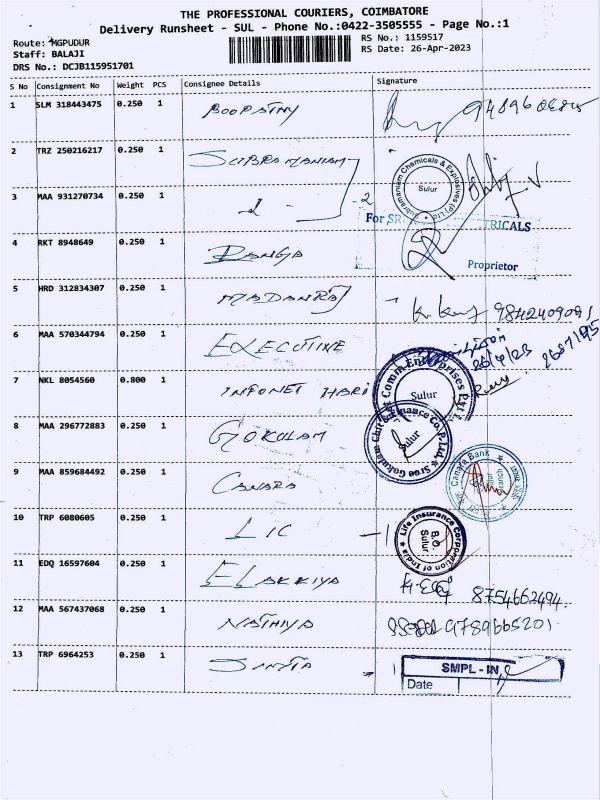 THE PROFESSIONAL COURIERS, COIMBATORE
Delivery Runsheet - SUL - Phone No.:0422-3505555 - Page No.:1
Route: MGPUDUR
Staff: BALAJI
DRS No.: DCJB115951701
RS No.: 1159517
RS Date: 26-Apr-2023
S No Consignment No Weight PCS Consignee Details Signature
1 SLM 318443475 0.250 1 BOOPATHY
2 TRZ 250216217 0.250 1 SUBRAMANIAM
Subramaniam Chemicals & Explosives (P) Ltd
Sulur
3 MAA 931270734 0.250 1 2
For SR
TRICALS
4 RKT 8948649 0.250 1 RANGA
Proprietor
5 HRD 312834307 0.250 1 MADANRAJ 9842409091
6 MAA 570344794 0.250 1 EXECUTIVE
26/4/23
7 NKL 8054560 0.800 1 INFONET HARI
Comm Enterprises Pvt
Sulur
8 MAA 296772883 0.250 1 GOKULAM
Sree Gokulam Chit & Finance Co. P. Ltd.
Sulur
9 MAA 859684492 0.250 1 CANARA
Canara Bank
Sulur
Branch
10 TRP 6080605 0.250 1 LIC - 1
Life Insurance Corporation of India
B.O.
Sulur
11 EDQ 16597604 0.250 1 ELAKKIYA 8754662494
12 MAA 567437068 0.250 1 NATHIYA 9789665201
13 TRP 6964253 0.250 1
SMPL - IN
Date